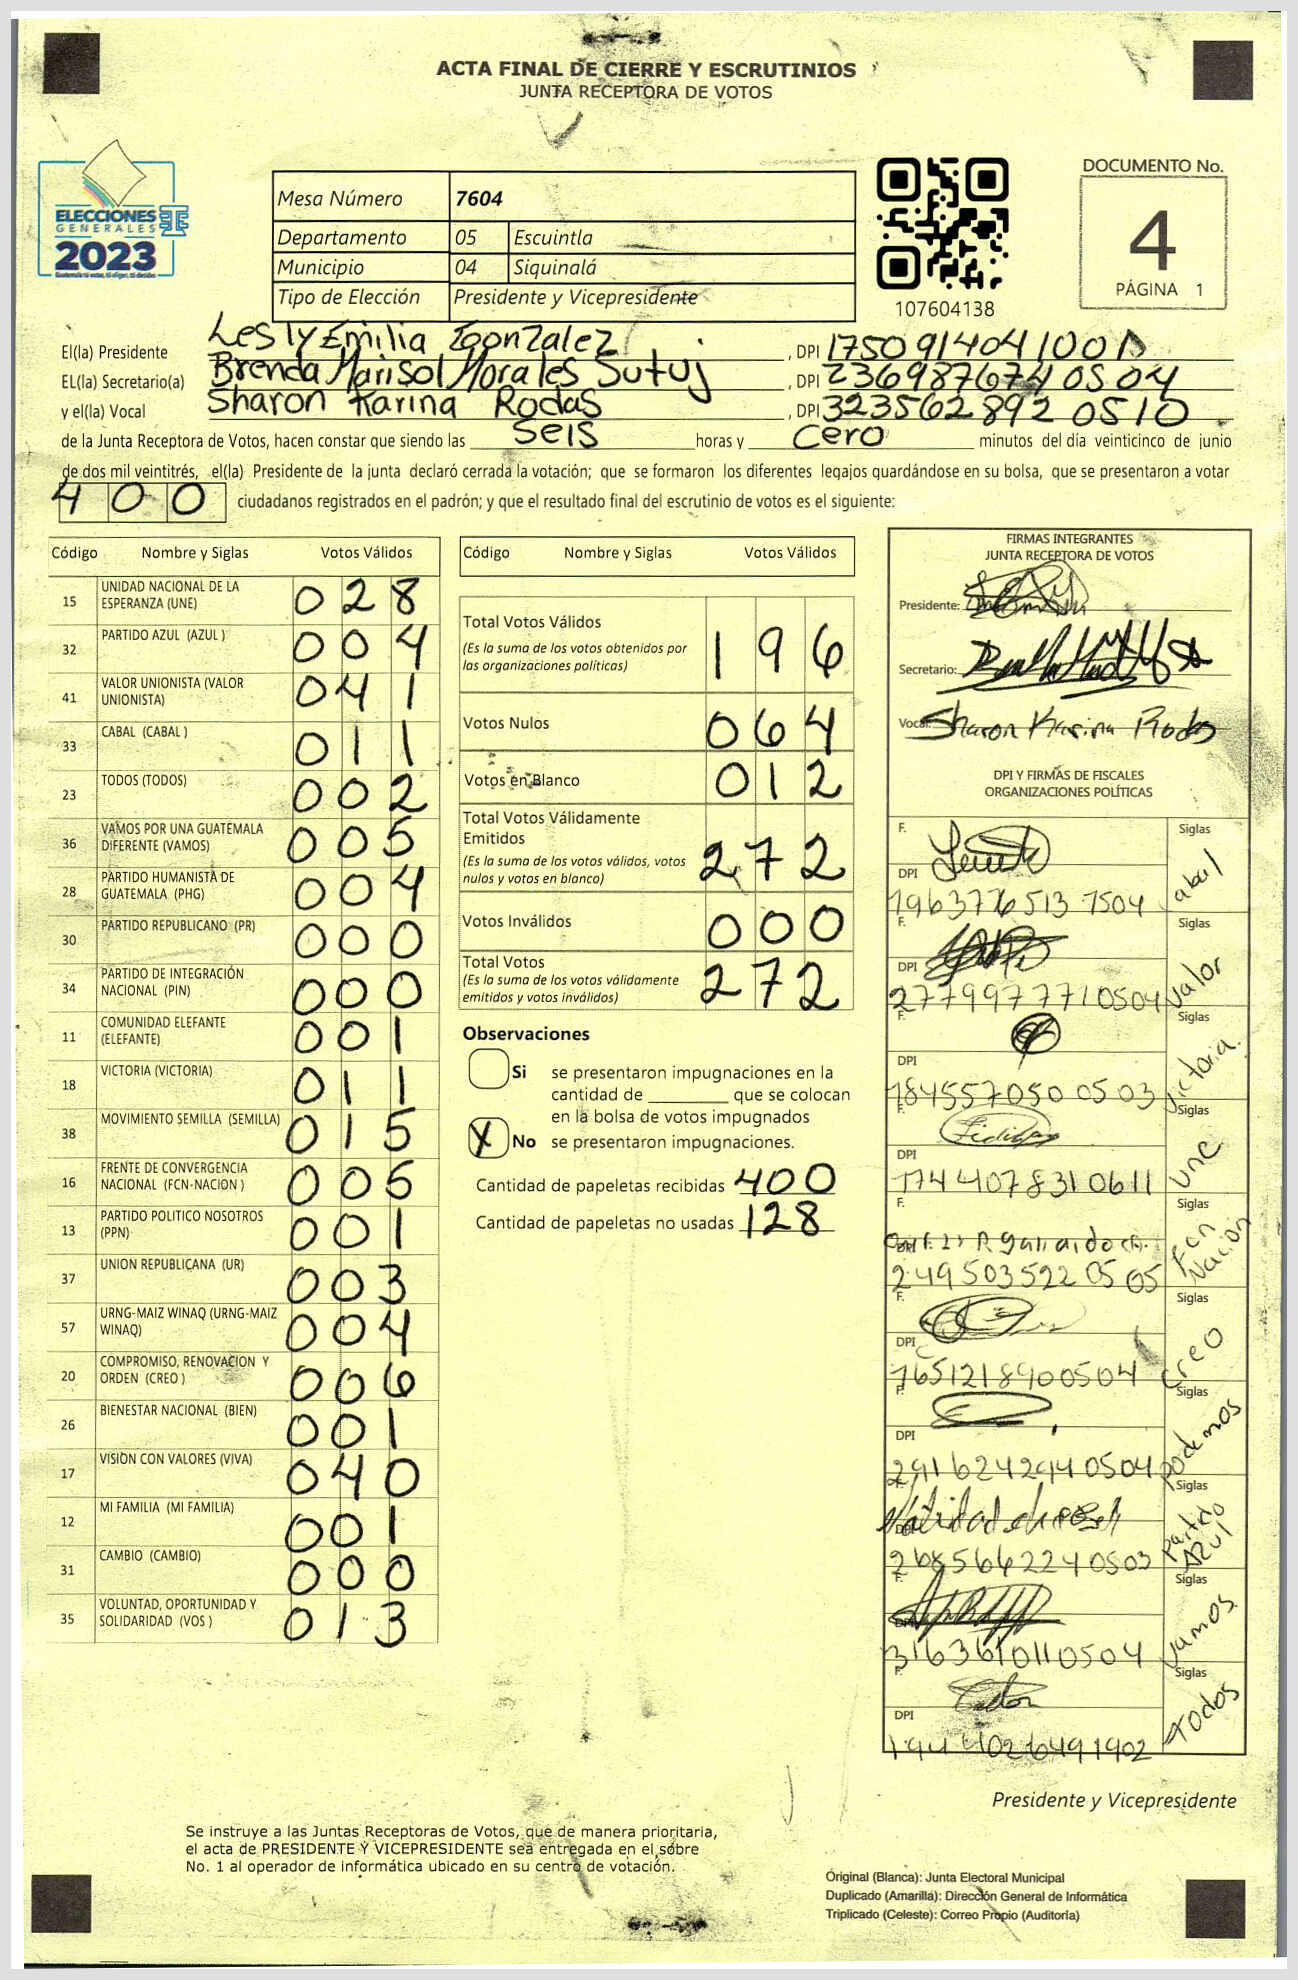 ACTA FINAL DE CIERRE Y ESCRUTINIOS
JUNTA RECEPTORA DE VOTOS
ELECCIONES
GENERALES
2023
Mesa Número 7604
Departamento 05 Escuintla
Municipio 04 Siquinalá
Tipo de Elección Presidente y Vicepresidente
107604138
DOCUMENTO No.
4
PÁGINA 1
El(la) Presidente Lesly Emilia Gonzalez, DPI 1750914041001
EL(la) Secretario(a) Brenda Marisol Morales Sutuj, DPI 2369876740504
y el(la) Vocal Sharon Karina Rodas, DPI 3235628920510
de la Junta Receptora de Votos, hacen constar que siendo las seis horas y cero minutos del día veinticinco de junio
de dos mil veintitrés, el(la) Presidente de la junta declaró cerrada la votación; que se formaron los diferentes legajos guardándose en su bolsa, que se presentaron a votar
400 ciudadanos registrados en el padrón; y que el resultado final del escrutinio de votos es el siguiente:
Código Nombre y Siglas Votos Válidos
15 UNIDAD NACIONAL DE LA ESPERANZA (UNE) 028
32 PARTIDO AZUL (AZUL ) 004
41 VALOR UNIONISTA (VALOR UNIONISTA) 041
33 CABAL (CABAL ) 011
23 TODOS (TODOS) 002
36 VAMOS POR UNA GUATEMALA DIFERENTE (VAMOS) 005
28 PARTIDO HUMANISTA DE GUATEMALA (PHG) 004
30 PARTIDO REPUBLICANO (PR) 000
34 PARTIDO DE INTEGRACIÓN NACIONAL (PIN) 000
11 COMUNIDAD ELEFANTE (ELEFANTE) 001
18 VICTORIA (VICTORIA) 011
38 MOVIMIENTO SEMILLA (SEMILLA) 015
16 FRENTE DE CONVERGENCIA NACIONAL (FCN-NACION ) 005
13 PARTIDO POLITICO NOSOTROS (PPN) 001
37 UNION REPUBLICANA (UR) 003
57 URNG-MAIZ WINAQ (URNG-MAIZ WINAQ) 004
20 COMPROMISO, RENOVACION Y ORDEN (CREO ) 006
26 BIENESTAR NACIONAL (BIEN) 001
17 VISION CON VALORES (VIVA) 040
12 MI FAMILIA (MI FAMILIA) 001
31 CAMBIO (CAMBIO) 000
35 VOLUNTAD, OPORTUNIDAD Y SOLIDARIDAD (VOS ) 013
Código Nombre y Siglas Votos Válidos
Total Votos Válidos 196
(Es la suma de los votos obtenidos por
las organizaciones políticas)
Votos Nulos 064
Votos en Blanco 012
Total Votos Válidamente
Emitidos 272
(Es la suma de los votos válidos, votos
nulos y votos en blanco)
Votos Inválidos 000
Total Votos 272
(Es la suma de los votos válidamente
emitidos y votos inválidos)
Observaciones
Si se presentaron impugnaciones en la
cantidad de ________ que se colocan
en la bolsa de votos impugnados
X No se presentaron impugnaciones.
Cantidad de papeletas recibidas 400
Cantidad de papeletas no usadas 128
FIRMAS INTEGRANTES
JUNTA RECEPTORA DE VOTOS
Presidente:
Secretario:
Vocal: Sharon Karina Rodas
DPI Y FIRMAS DE FISCALES
ORGANIZACIONES POLÍTICAS
F. Siglas
DPI
1963776513 1504 Cabal
F. Siglas
DPI
2779977710504 Valor
F. Siglas
DPI
1845570500503 Victoria
F. Siglas
DPI
1744078310611 UNE
F. Siglas
DPI
2495035220505 Fcn Nación
F. Siglas
DPI
1651218900504 Creo
F. Siglas
DPI
2916242940504 podemos
F. Siglas
DPI
2685662240503 partido AZUL
F. Siglas
DPI
3163610110504 Vamos
F. Siglas
DPI
1944026491902 todos
Presidente y Vicepresidente
Se instruye a las Juntas Receptoras de Votos, que de manera prioritaria,
el acta de PRESIDENTE Y VICEPRESIDENTE sea entregada en el sobre
No. 1 al operador de informática ubicado en su centro de votación.
Original (Blanca): Junta Electoral Municipal
Duplicado (Amarilla): Dirección General de Informática
Triplicado (Celeste): Correo Propio (Auditoría)